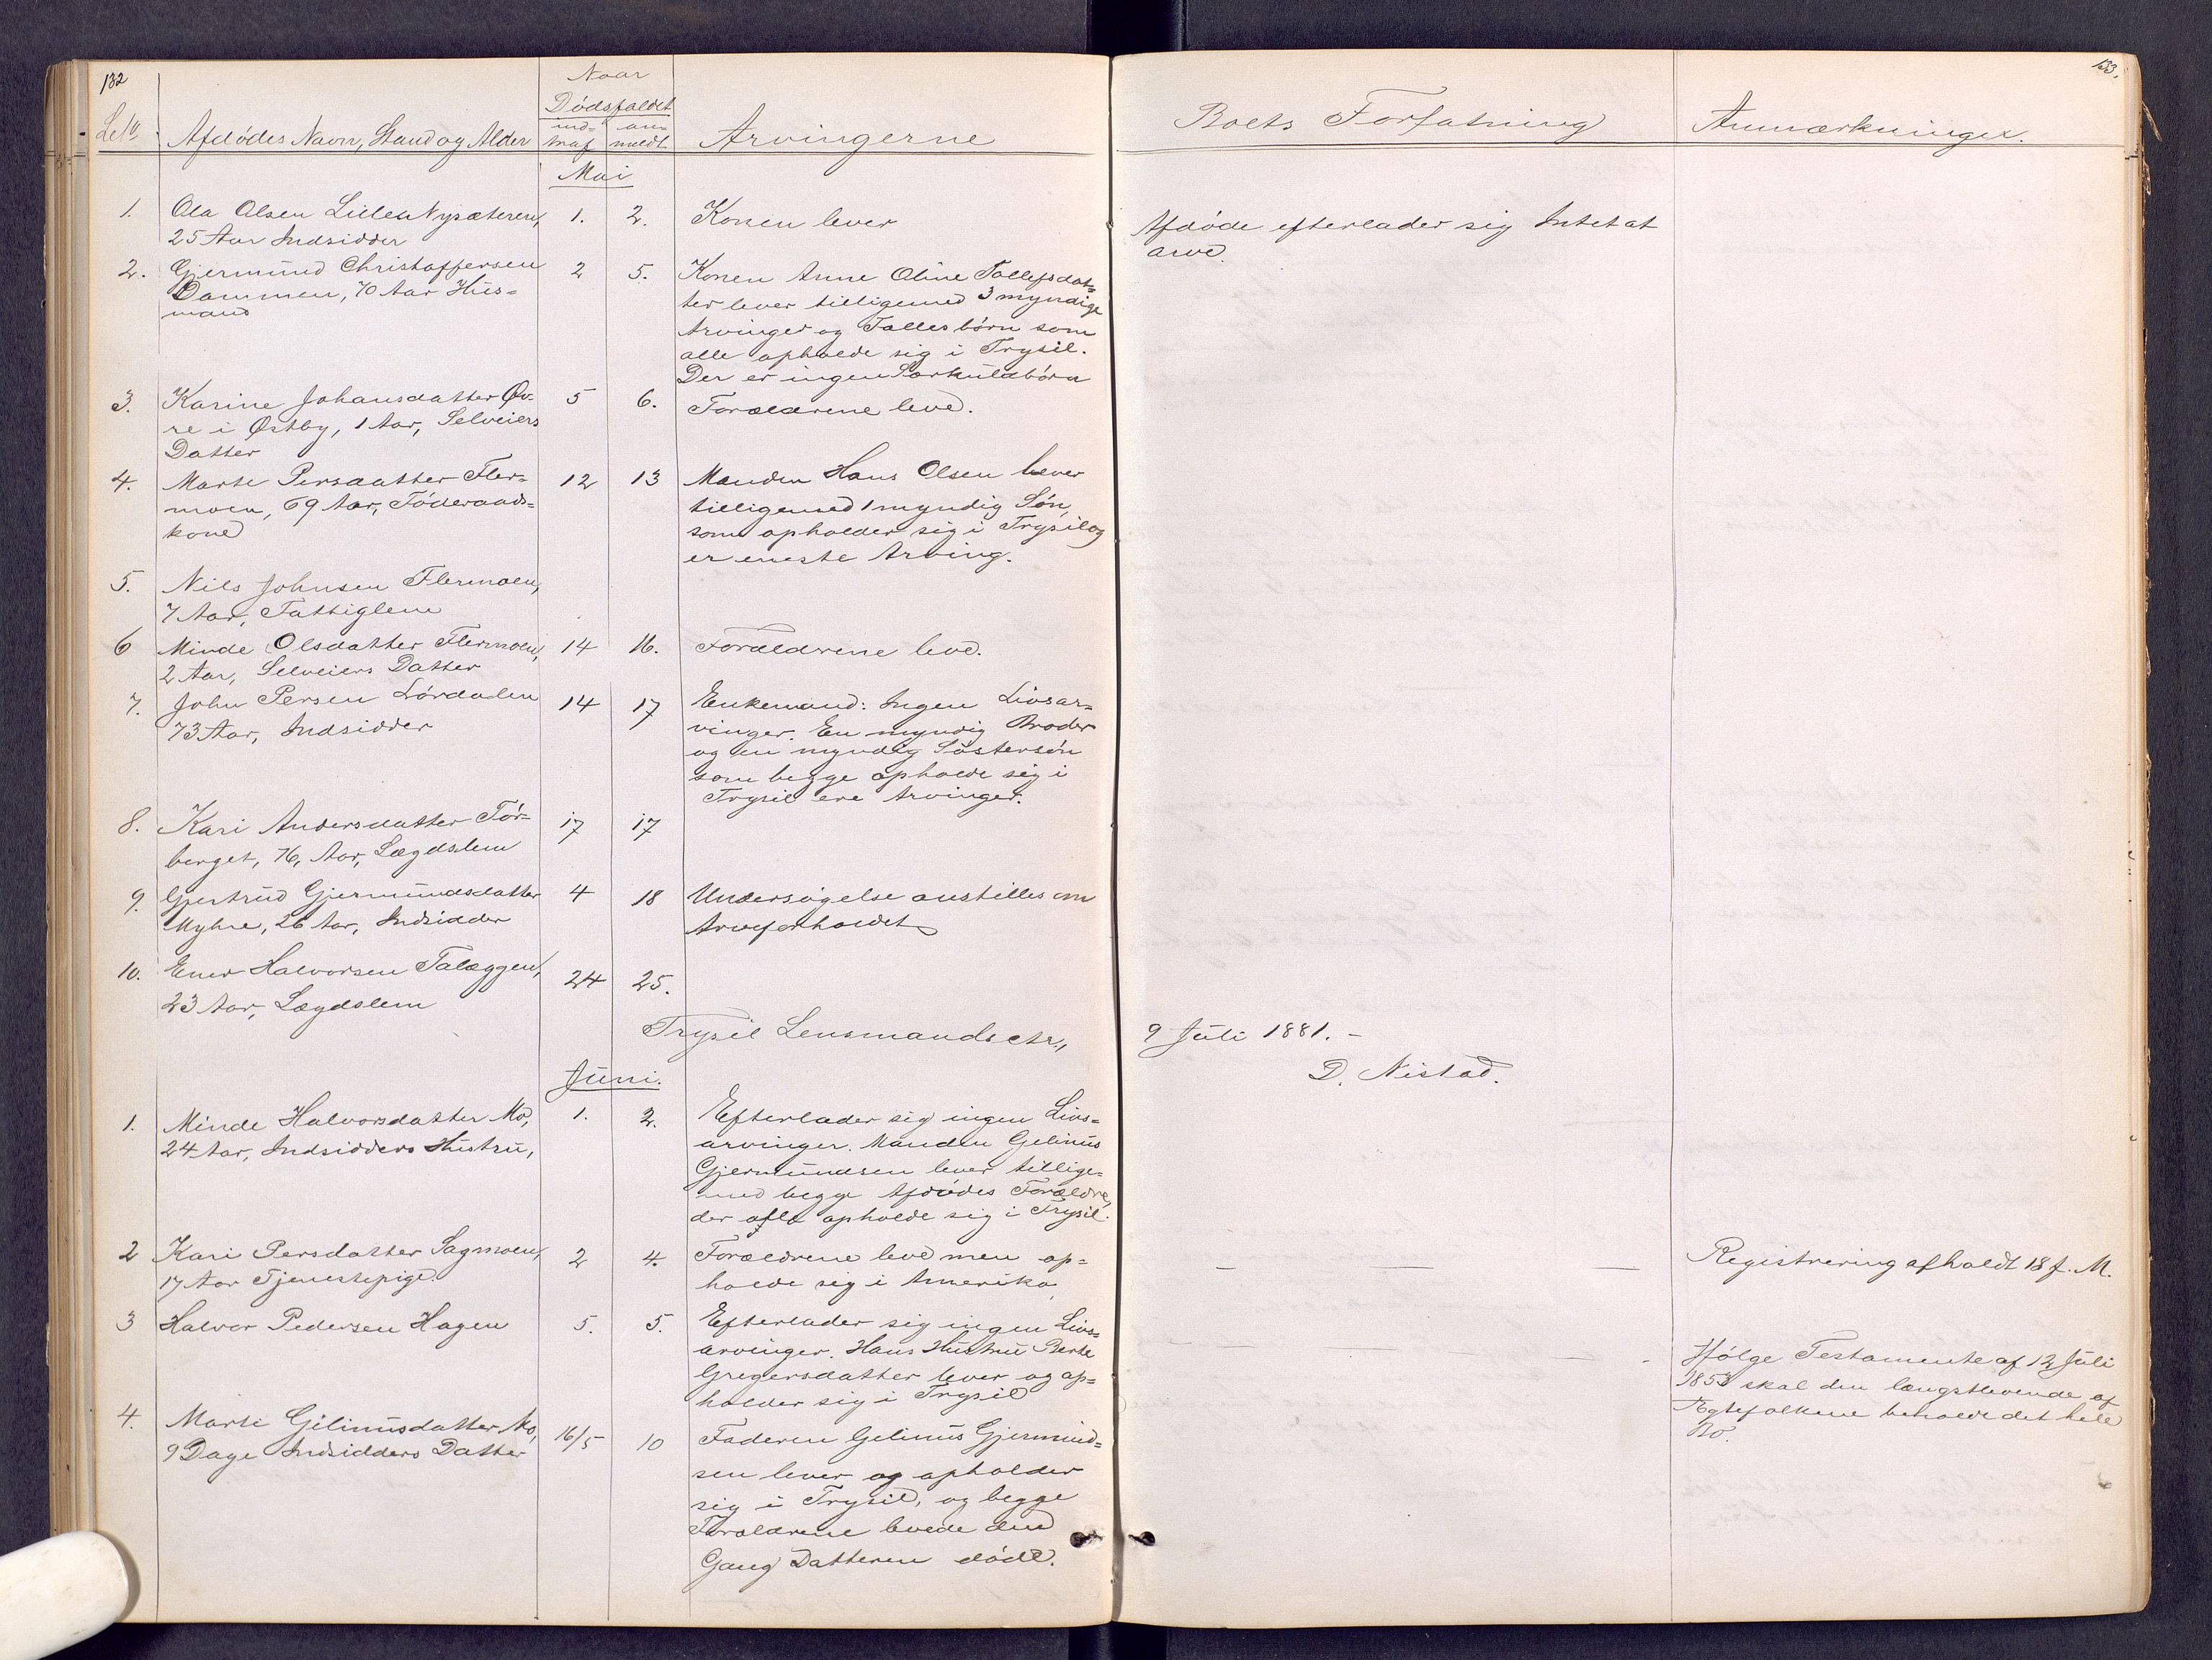 132
Naar
Dødsfaldet
Afdødes Navn, Stand og Alder
ind-
traf
an-
meldt
Arvingerne
Mai
1. Ola Olsen Lillen Nysæteren, 1. 2. Konen lever
25 Aar Indsidder
2. Gjermund Christoffersen 2 5. Konen Anne Oline Tollefsdat-
Dammen, 70 Aar Hus- ter lever tilligemed 3 myndige
mand Arvinger og Fælles børn som
alle opholde sig i Trysil.
Der er ingen Særkuldbørn
3. Karine Johansdatter Øv- 5 6. Forældrene leve.
re i Østby, 1 Aar, Selveiers
Datter
4. Marte Persdatter Fler- 12 13 Manden Hans Olsen lever
moen, 69 Aar, Föderaads- tilligemed 1 myndig Søn,
kone som opholder sig i Trysil og
er eneste Arving.
5. Nils Johnsen Flermoen,
7 Aar, Fattiglem
6 Minde Olsdatter Flermoen, 14 16. Forældrene leve.
2 Aar, Selveiers Datter
7. John Persen Lørdalen 14 17 Enkemand: Ingen Livsar-
73 Aar, Indsidder vinger. En myndig Broder
og en myndig Søstersøn
som begge opholde sig i
Trysil ere Arvinger.
8. Kari Andersdatter Tør- 17 17
berget, 76, Aar, Lægdslem
9. Gjertrud Gjermundsdatter 4 18 Undersøgelse anstilles om
Myhre, 26 Aar, Indsidder Arveforholdet
10. Ener Halvorsen Talæggen, 24 25.
23 Aar, Lægdslem
Trysil Lensmandsctr.,
Juni.
1. Minde Halvorsdatter Mo, 1. 2. Efterlader sig ingen Livs-
24 Aar, Indsidders Hustru, arvinger. Manden Gelinus
Gjermundsen lever tillige-
med begge Afdødes Forældre,
der alle opholde sig i Trysil.
2 Kari Persdatter Sagmoen, 2 4. Forældrene leve men op-
17 Aar Tjenestepige. holde sig i Amerika
3 Halvor Pedersen Hagen 5. 5. Efterlader sig ingen Livs-
arvinger. Hans Hustru Berte
Gregersdatter lever og op-
holder sig i Trysil
4. Marte Gelinusdatter Mo, 16/5 10 Faderen Gelinus Gjermund-
9 Dage Indsidders Datter sen lever og opholder
sig i Trysil, og begge
Forældrene levede den
Gang Datteren døde.
133.
Boets Forfatning Anmærkninger.
Afdøde efterlader sig Intet at
arve.
9 Juli 1881. -
D. Nistad.
- — — Registrering afholdt 18 f. M.
Ifølge Testamente af 12 Juli
1853 skal den længstlevende af
Ægtefolkene beholde det hele
Bo.